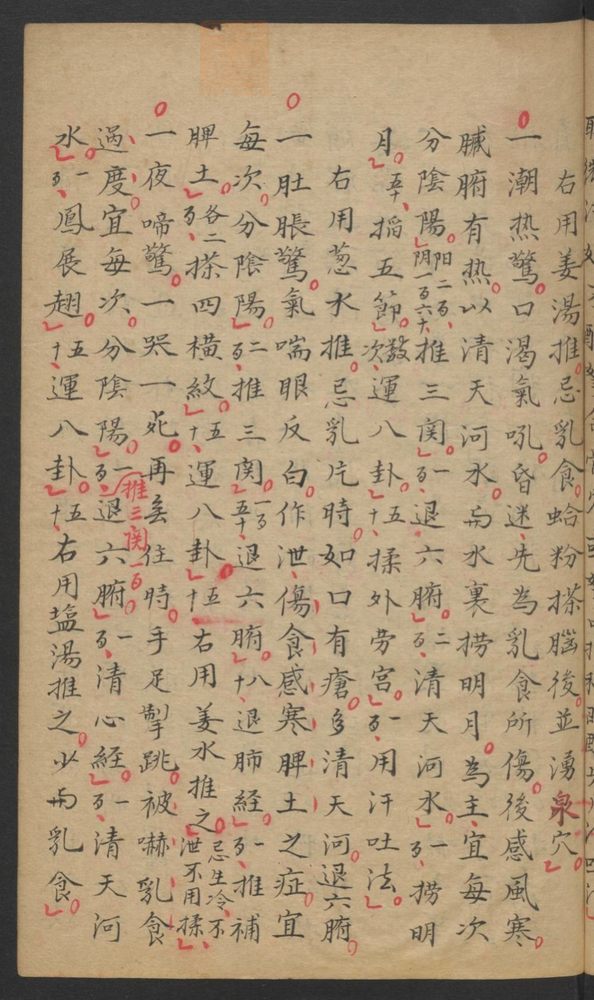 右用姜湯推。忌乳食。蛤粉搽腦後並湧泉穴。
一潮热驚。口渴氣吼。昏迷。先為乳食所傷。後感風寒。
臟腑有热。以清天河水。与水裏撈明月。為主。宜每次
分陰陽。阳二百、阴一百六十、推三関。一百、退六腑。二百、清天河水。一百、撈明
月。五十、掐五節。数次、運八卦。五十、揉外劳宫。一百、用汗吐法。
右用葱水推。忌乳片時。如口有瘡。多清天河。退六腑。
一肚脹驚。氣喘眼反白。作泄、傷食感寒。脾土之症。宜
每次。分陰陽。二百、推三関。一百五十、退六腑。八十、退肺經。一百、推補
脾土。各二百、搽四横紋。五十、運八卦。五十、右用姜水推之。忌生冷、不泄不用揉、
一夜啼驚。一哭一死。再無住時。手足掣跳。被嚇。乳食
過度。宜每次。分陰陽。一百、推三関一百。退六腑。一百、清心經。一百、清天河
水。一百、鳳展翅。五十、運八卦。五十、右用塩湯推之。少与乳食。